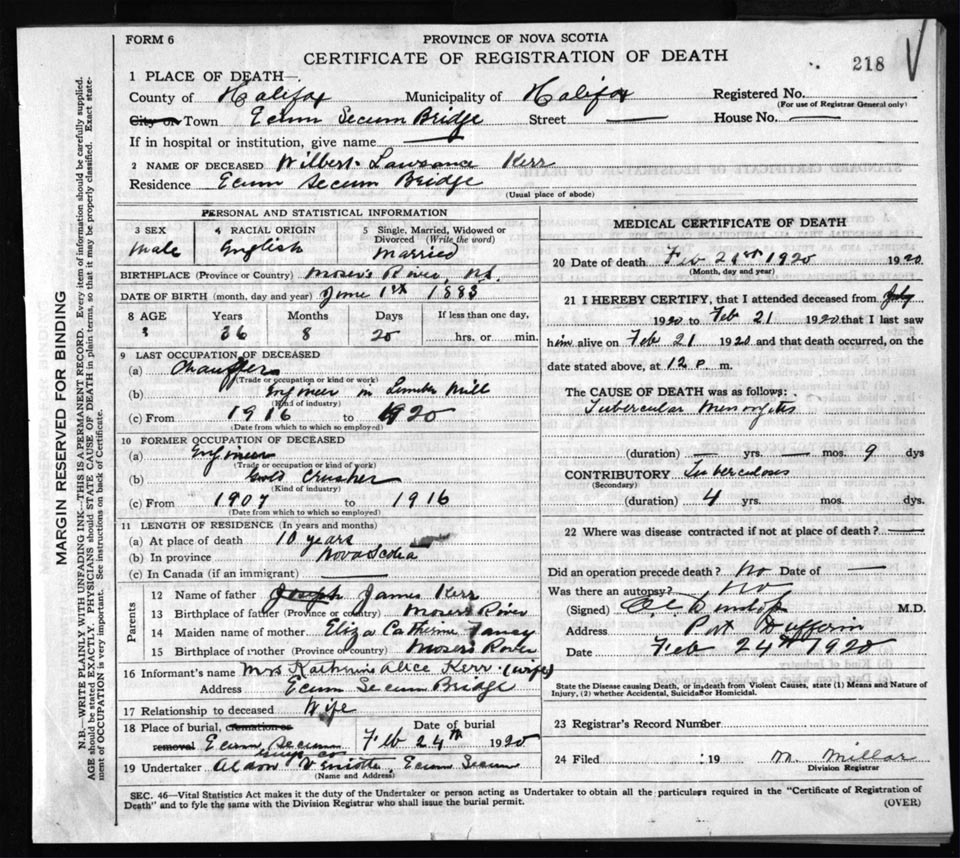 FORM 6
PROVINCE OF NOVA SCOTIA
CERTIFICATE OF REGISTRATION OF DEATH
218
1 PLACE OF DEATH—
County of Halifax Municipality of Halifax Registered No.
(For use of Registrar General only)
City or Town Ecum Secum Bridge Street — House No. —
If in hospital or institution, give name —
2 NAME OF DECEASED Wilbert Lawrance Kerr
Residence Ecum Secum Bridge
(Usual place of abode)
PERSONAL AND STATISTICAL INFORMATION
3 SEX Male
4 RACIAL ORIGIN English
5 Single, Married, Widowed or Divorced (Write the word) Married
BIRTHPLACE (Province or Country) Mosers River, N.S.
DATE OF BIRTH (month, day and year) June 1st 1883
8 AGE Years Months Days If less than one day,
36 8 20 hrs. or min.
9 LAST OCCUPATION OF DECEASED
(a) Chauffer
(Trade or occupation or kind or work)
(b) Engineer in Lumber Mill
(Kind of industry)
(c) From 1916 to 1920
(Date from which to which so employed)
10 FORMER OCCUPATION OF DECEASED
(a) Engineer
(Trade or occupation or kind of work)
(b) Gold Crusher
(Kind of industry)
(c) From 1907 to 1916
(Date from which to which so employed)
11 LENGTH OF RESIDENCE (In years and months)
(a) At place of death 10 years
(b) In province Nova Scotia
(c) In Canada (if an immigrant) —
Parents
12 Name of father Joseph James Kerr
13 Birthplace of father (Province or country) Mosers River
14 Maiden name of mother Eliza Catherine Fancy
15 Birthplace of mother (Province or Country) Mosers River
16 Informant's name Mrs Katherine Alice Kerr (wife)
Address Ecum Secum Bridge
17 Relationship to deceased Wife
18 Place of burial, cremation or removal Ecum Secum
Date of burial Feb 24th 1920
19 Undertaker Ecum Secum
(Name and Address)
MEDICAL CERTIFICATE OF DEATH
20 Date of death Feb 21st 1920 1920
(Month, day and year)
21 I HEREBY CERTIFY, that I attended deceased from
1920 to Feb 21 1920 that I last saw
him alive on Feb 21 1920 and that death occurred, on the
date stated above, at 12 p. m.
The CAUSE OF DEATH was as follows:
Tubercular Meningitis
(duration) — yrs. — mos. 9 dys
CONTRIBUTORY Tuberculosis
(Secondary)
(duration) 4 yrs. mos. dys.
22 Where was disease contracted if not at place of death? —
Did an operation precede death? No Date of —
Was there an autopsy? No
(Signed) M.D.
Address Port Dufferin
Date Feb 24th 1920
State the Disease causing Death, or in death from Violent Causes, state (1) Means and Nature of
Injury, (2) whether Accidental, Suicidal or Homicidal.
23 Registrar's Record Number
24 Filed 19 M. Millar
Division Registrar
SEC. 46—Vital Statistics Act makes it the duty of the Undertaker or person acting as Undertaker to obtain all the particulars required in the "Certificate of Registration of
Death" and to fyle the same with the Division Registrar who shall issue the burial permit.
(OVER)
MARGIN RESERVED FOR BINDING
N.B.—WRITE PLAINLY WITH UNFADING INK—THIS IS A PERMANENT RECORD. Every item of information should be carefully supplied.
AGE should be stated EXACTLY. PHYSICIANS should STATE CAUSE OF DEATH in plain terms, so that it may be properly classified. Exact state-
ment of OCCUPATION is very important. See instructions on back of Certificate.